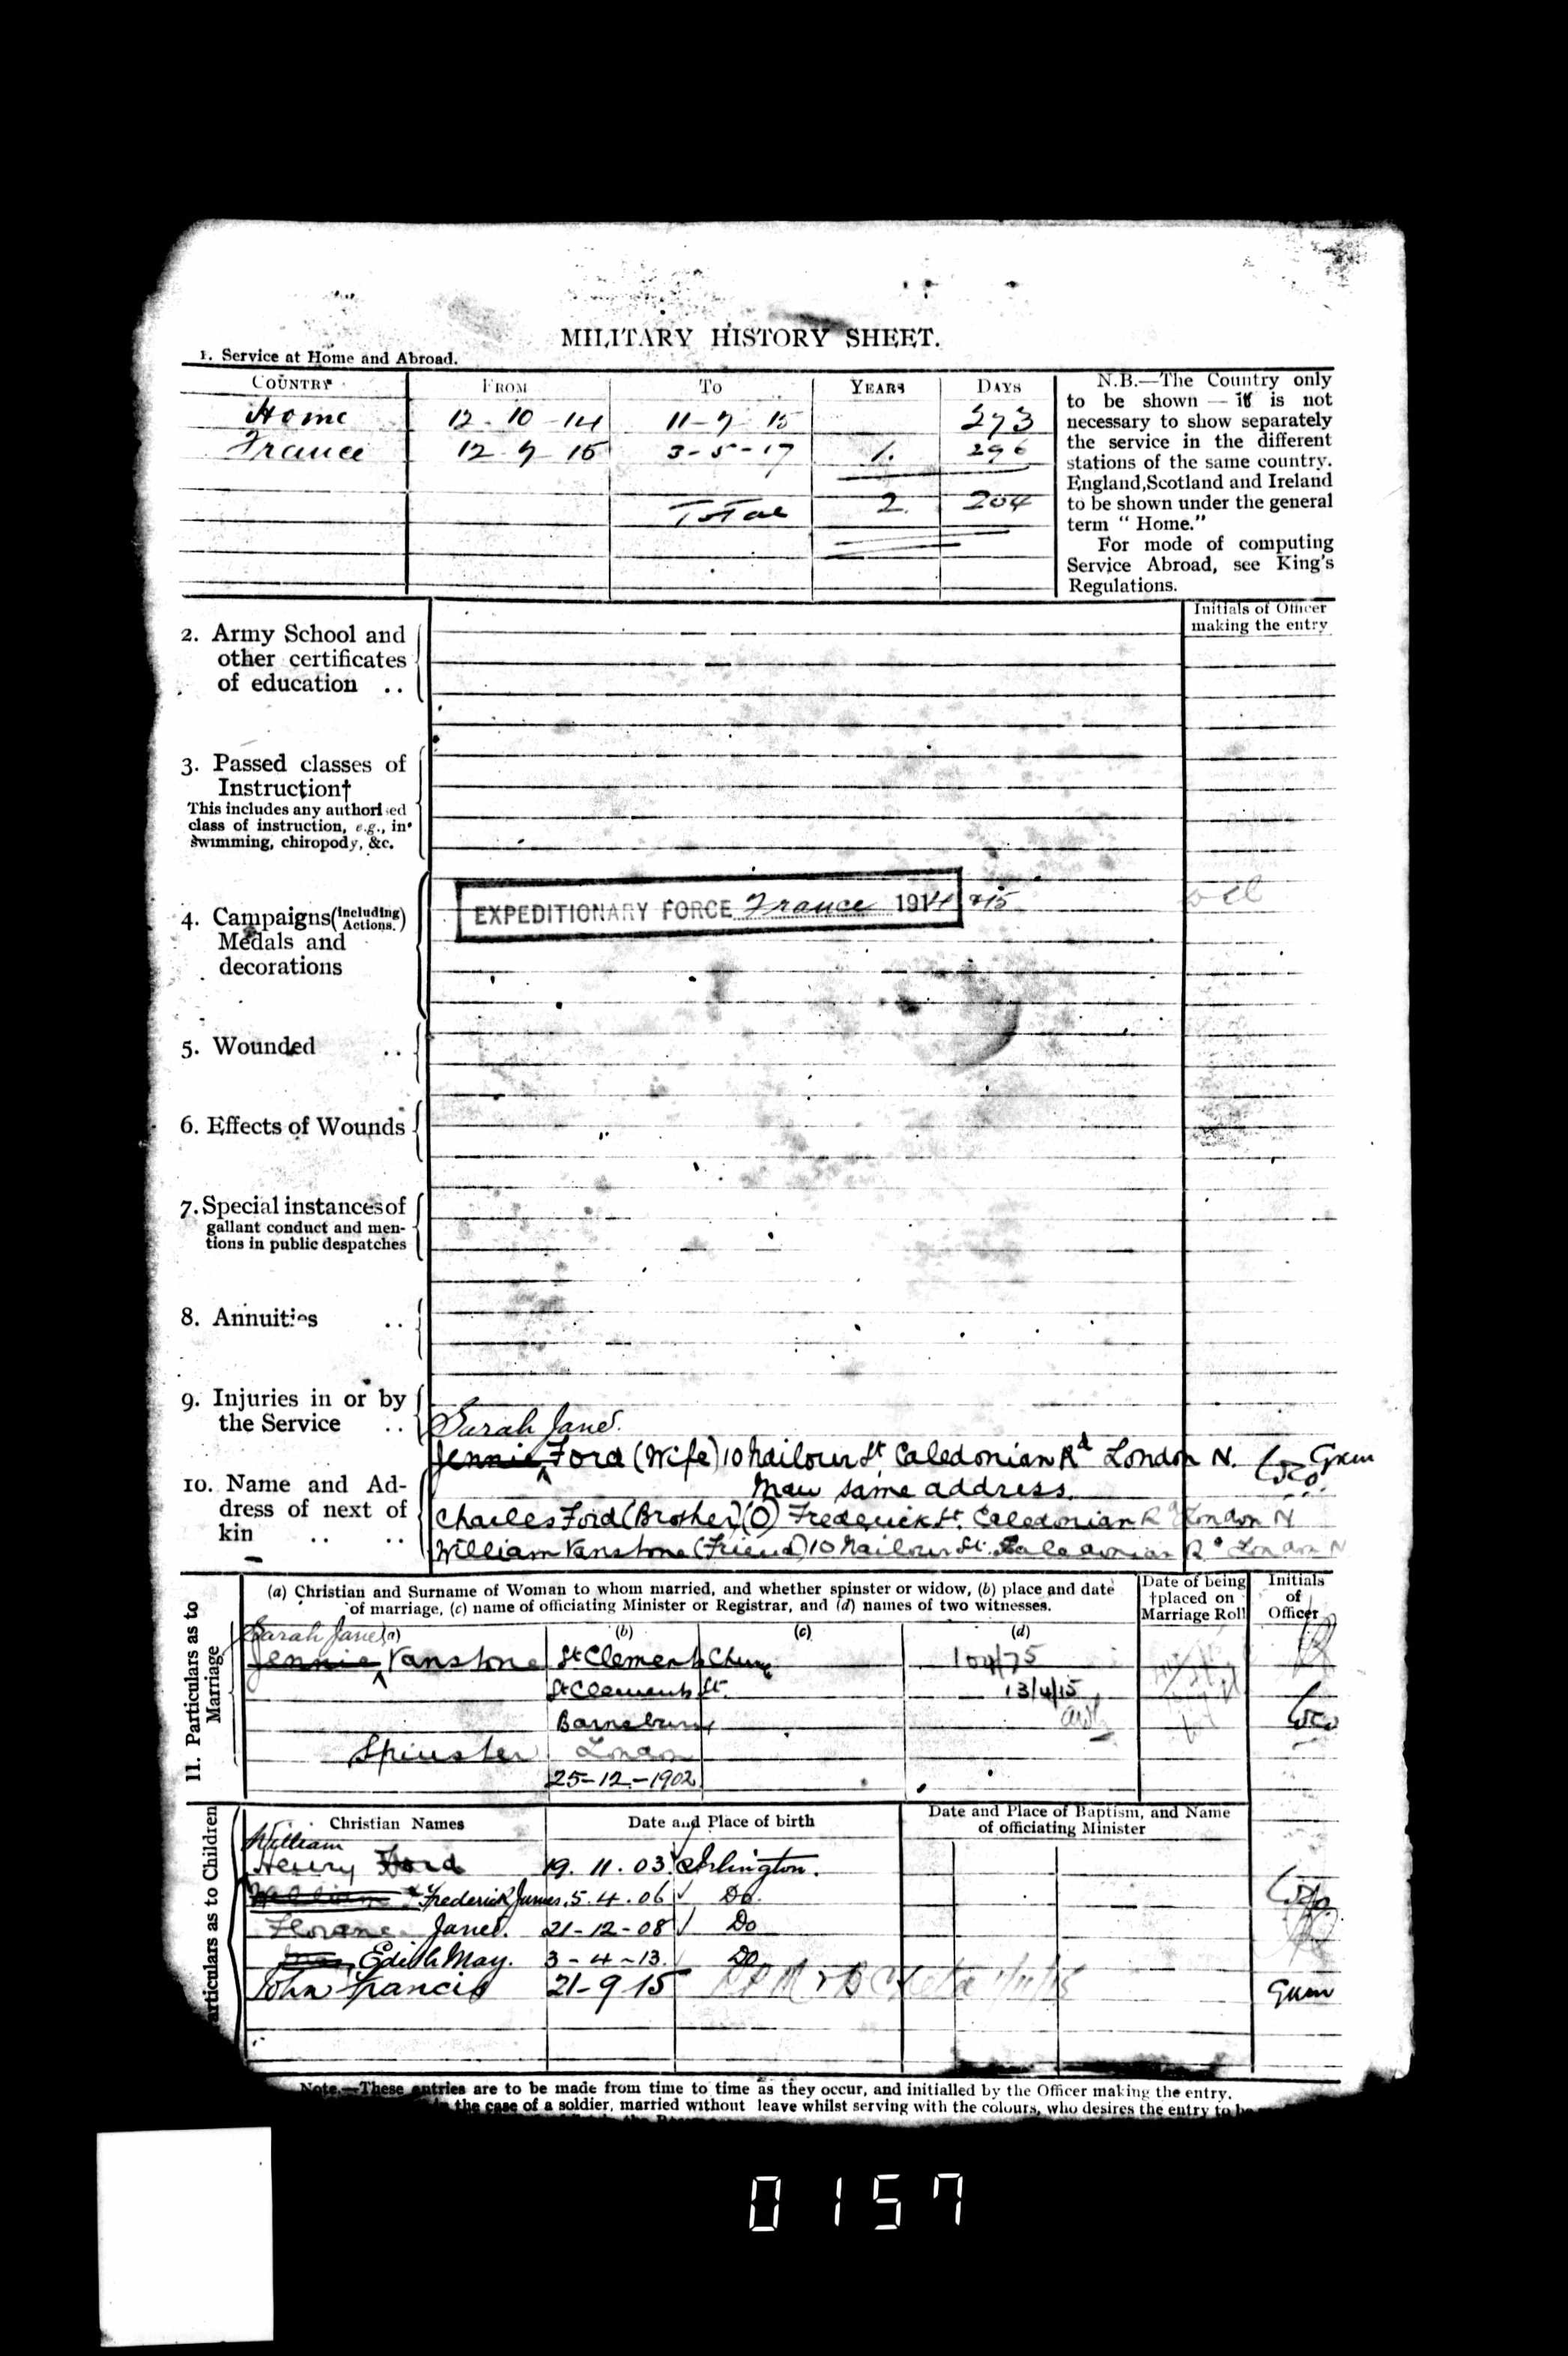 MILITARY HISTORY SHEET.
1. Service at Home and Abroad.
COUNTRY FROM TO YEARS DAYS
Home 12-10-14 11-7-15 273
France 12-7-15 3-5-17 1. 296
Total 2. 204
N.B.—The Country only
to be shown — it is not
necessary to show separately
the service in the different
stations of the same country.
England, Scotland and Ireland
to be shown under the general
term "Home."
For mode of computing
Service Abroad, see King's
Regulations.
Initials of Officer
making the entry
2. Army School and
other certificates
of education ..
3. Passed classes of
Instruction†
This includes any authorised
class of instruction, e.g., in
swimming, chiropody, &c.
4. Campaigns (including Actions.)
Medals and
decorations
EXPEDITIONARY FORCE France 1914 & 15
5. Wounded ..
6. Effects of Wounds
7. Special instances of
gallant conduct and men-
tions in public despatches
8. Annuities ..
9. Injuries in or by
the Service ..
10. Name and Ad-
dress of next of
kin .. ..
Sarah Jane.
Jennie Ford (Wife) 10 St. Caledonian Rd London N.
same address.
Charles Ford (Brother) (O) Frederick St. Caledonian Rd London N
William Vanstone (Friend) 10 St. Caledonian Rd London N
11. Particulars as to
Marriage
(a) Christian and Surname of Woman to whom married, and whether spinster or widow, (b) place and date
of marriage, (c) name of officiating Minister or Registrar, and (d) names of two witnesses.
Date of being
†placed on
Marriage Roll
Initials
of
Officer
(a) (b) (c) (d)
Sarah Jane
Jennie Vanstone St Clements
St Clements St. 13/4/15
Barnsbury
Spinster London
25-12-1902
articulars as to Children
Christian Names Date and Place of birth
Date and Place of Baptism, and Name
of officiating Minister
William
Henry Ford 19.11.03. Islington.
William Frederick James. 5.4.06 Do.
Jane. 21-12-08 Do
Edith May. 3-4-13. Do
John Francis 21-9-15
Note.—These entries are to be made from time to time as they occur, and initialled by the Officer making the entry.
the case of a soldier, married without leave whilst serving with the colours, who desires the entry to be
0157